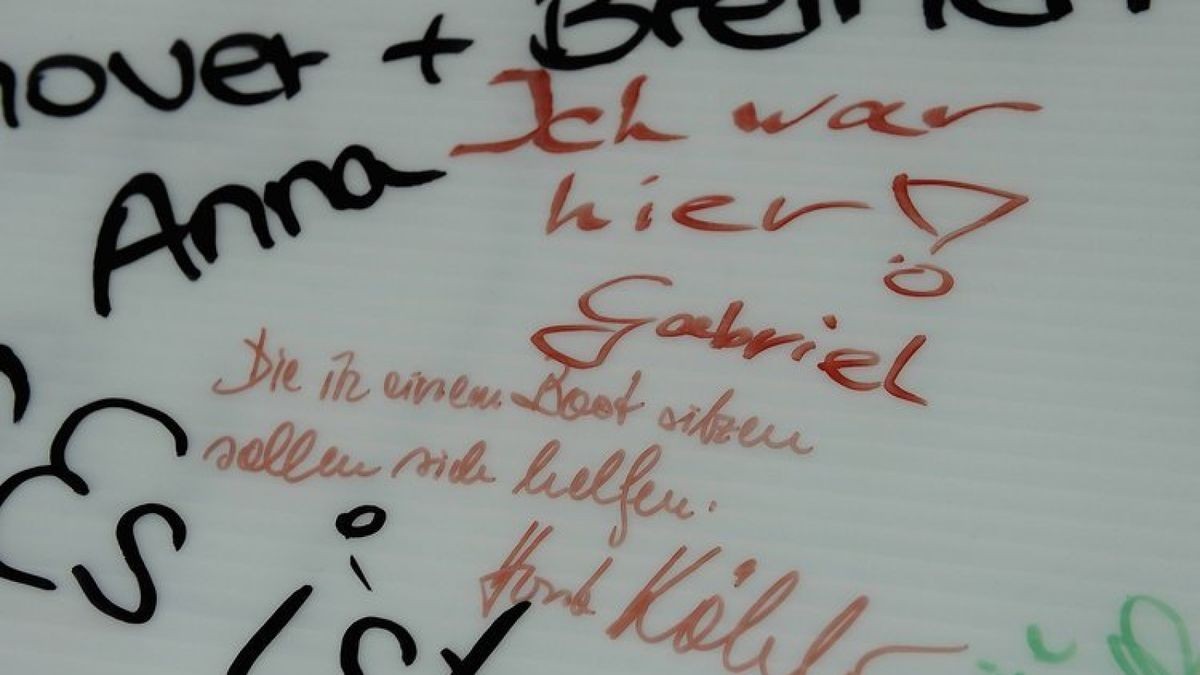 + Bremen
Anna
Ich war
hier!
Gabriel
Die in einem Boot sitzen
sollen sich helfen.
Horst Köhler
Es ist